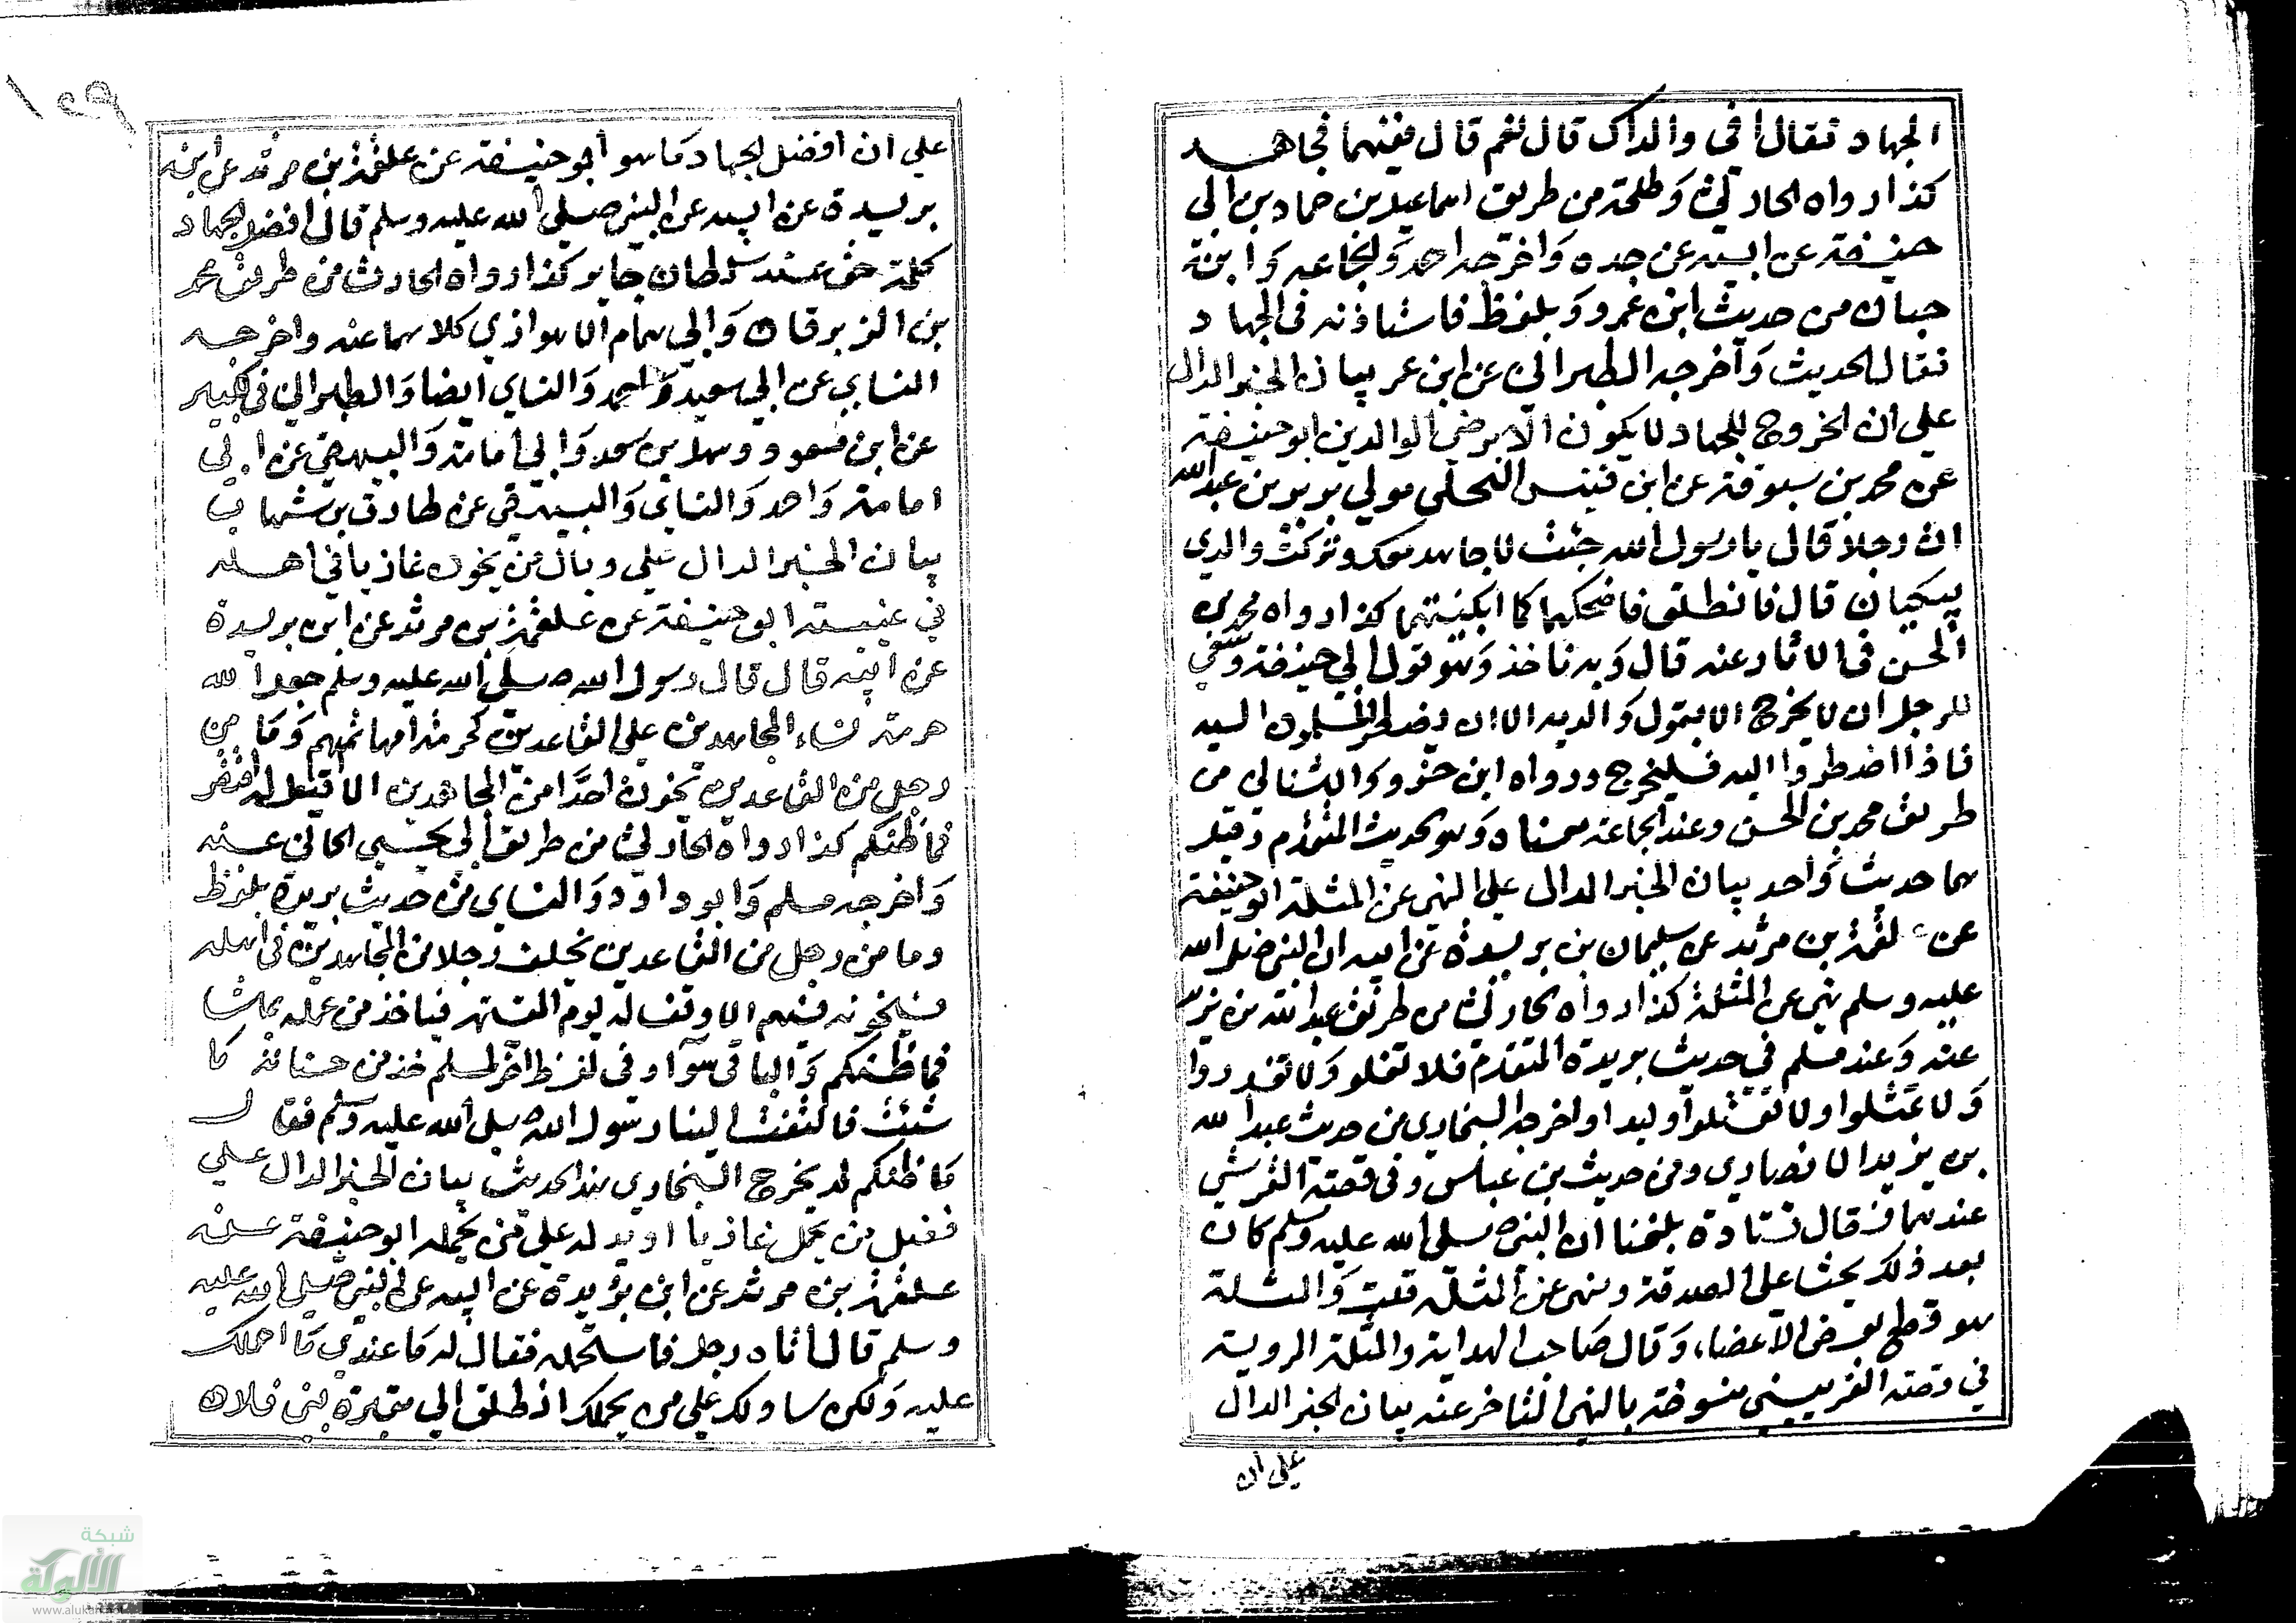 الجهاد فقال افي والداك قال نعم قال ففيهما فجاهد
كذا رواه الحارثي وطلحة من طريق اسماعيل بن حماد بن ابي
حنيفة عن ابيه عن جده واخرجه احمد والجماعه وابن
حبان من حديث ابن عمرو وبلفظ فاستاذنه في الجهاد
فقال الحديث واخرجه الطبراني عن ابن عمر بيان الخبر الدال
علي ان الخروج للجهاد لا يكون الا برضي الوالدين ابو حنيفة
عن محمد بن سوقة عن ابن قيس البجلي مولي جرير بن عبد الله
ان رجلا قال يا رسول الله جئت لاجاهد معك وتركت والدي
يبكيان قال فانطلق فاضحكهما كما ابكيتهما كذا رواه محمد بن
الحسن في الاثار عنه قال وبه ناخذ وهو قول ابي حنيفة وينبغي
للرجل ان لا يخرج الا بقول والديه الا ان يضطر المسلمون اليه
فاذا اضطروا اليه فليخرج ورواه ابن خسرو والاشناني من
طريق محمد بن الحسن وعند الجماعة معناه وهو الحديث المتقدم وقيل
هما حديث واحد بيان الخبر الدال علي النهي عن المثلة ابو حنيفة
عن علقمة بن مرثد عن سليمان بن بريدة عن ابيه ان النبي صلي الله
عليه وسلم نهي عن المثلة كذا رواه الحارثي من طريق عبد الله بن يزيد
عنه وعند مسلم في حديث بريدة المتقدم فلا تغلو ولا تغدروا
ولا تمثلوا ولا تقتلوا وليدا واخرجه البخاري من حديث عبد الله
بن يزيد الانصاري ومن حديث بن عباس وفي قصة القرشي
عندهما قال قتادة بلغنا ان النبي صلي الله عليه وسلم كان
بعد ذلك يحث علي الصدقة وينهي عن المثلة قلت والمثلة
هو قطع بعض الاعضاء وقال صاحب الهداية والمثلة المروية
في قصة العرنيين منسوخة بالنهي المتاخر عنه بيان الخبر الدال
علي ان
١٥٩
علي ان افضل الجهاد ما هو ابو حنيفة عن علقمة بن مرثد عن ابن
بريدة عن ابيه عن النبي صلي الله عليه وسلم قال افضل الجهاد
كلمة حق عند سلطان جاير كذا رواه الحارث من طريق محمد
بن الزبرقان وابي همام الاهوازي كلاهما عنه واخرجه
النساي عن ابي سعيد واحمد والنساي ايضا والطبراني في الكبير
عن ابن مسعود وسهل بن سعد وابي امامة والبيهقي عن ابي
امامة واحمد والنساي والبيهقي عن طارق بن شهاب
بيان الخبر الدال علي وبال من يخون غازيا في اهله
في غيبته ابو حنيفة عن علقمة بن مرثد عن ابن بريدة
عن ابيه قال قال رسول الله صلي الله عليه وسلم جعل الله
حرمة نساء المجاهدين علي القاعدين كحرمة امهاتهم وما من
رجل من القاعدين يخون احدا من المجاهدين الا قيل له اقتص
فما ظنكم كذا رواه الحارثي من طريق ابي يحيي الحماني عنه
واخرجه مسلم وابو داود والنساي من حديث بريدة بلفظ
وما من رجل من القاعدين يخلف رجلا من المجاهدين في اهله
فيخونه فيهم الا وقف له يوم القيمة فياخذ من عمله ما شا
فما ظنكم والباقي سواء وفي لفظ اخر لمسلم خذ من حسناته ما
شئت فالتفت الينا رسول الله صلي الله عليه وسلم فقال
ما ظنكم لم يخرج البخاري هذا الحديث بيان الخبر الدال علي
فضل من يحمل غازيا او يدله علي من يحمله ابو حنيفة عنه
علقمة بن مرثد عن ابن بريدة عن ابيه عن النبي صلي الله عليه
وسلم قال اتاه رجل فاستحمله فقال له ما عندي ما احملك
عليه ولكن سادلك علي من يحملك انطلق الي مقبرة بني فلان
شبكة
الألوكة